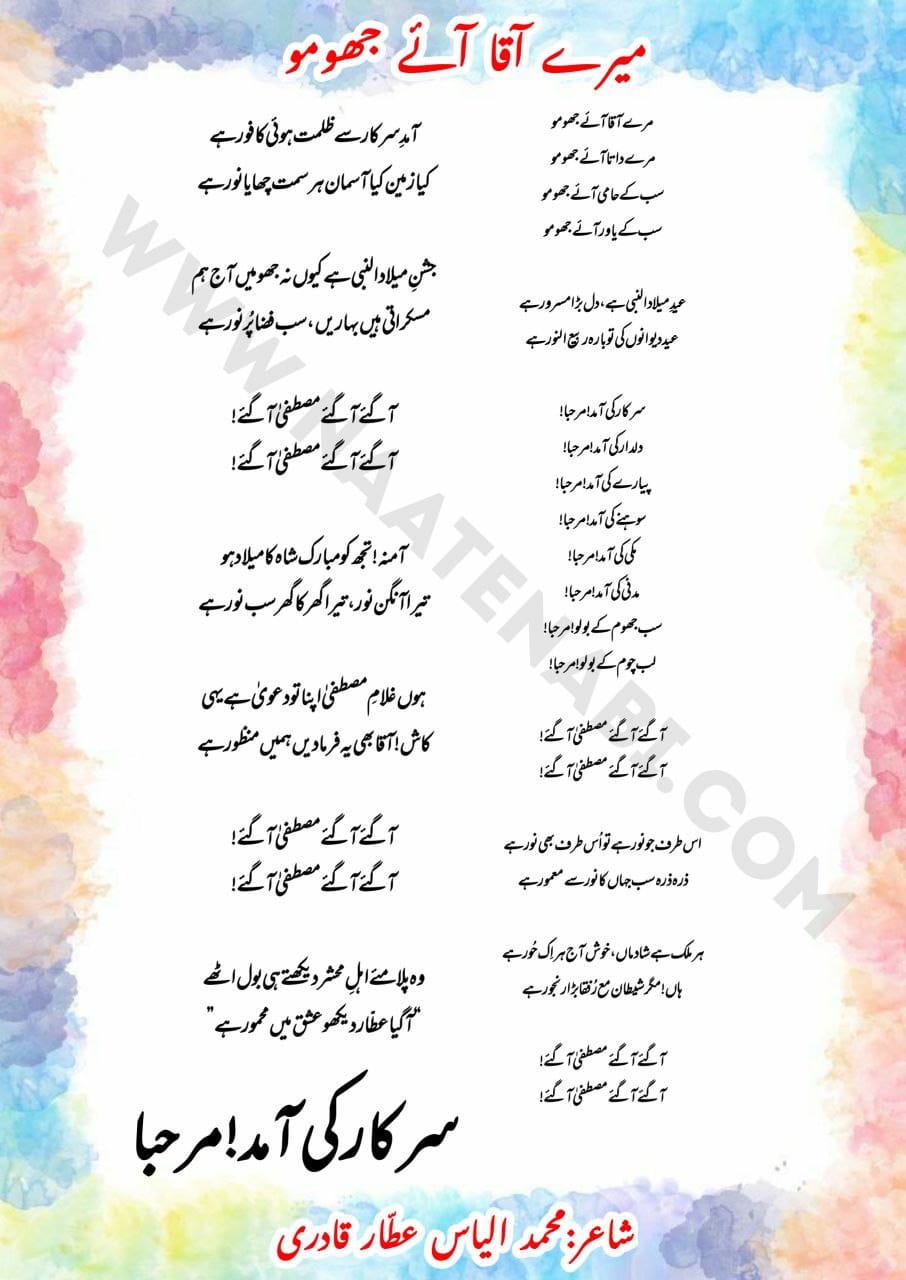 میرے آقا آئے جھومو
مرے آقا آئے جھومو
مرے داتا آئے جھومو
سب کے حامی آئے جھومو
سب کے یاور آئے جھومو
عیدِ میلاد النبی ہے، دل بڑا مسرور ہے
عید دیوانوں کی تو بارہ ربیع النور ہے
سرکار کی آمد! مرحبا!
دلدار کی آمد! مرحبا!
پیارے کی آمد! مرحبا!
سوہنے کی آمد! مرحبا!
مکی کی آمد! مرحبا!
مدنی کی آمد! مرحبا!
سب جھوم کے بولو! مرحبا!
لب چوم کے بولو! مرحبا!
آ گئے آ گئے مصطفیٰ آ گئے!
آ گئے آ گئے مصطفیٰ آ گئے!
اس طرف جو نور ہے تو اُس طرف بھی نور ہے
ذرہ ذرہ سب جہاں کا نور سے معمور ہے
ہر ملک ہے شادماں، خوش آج ہر اِک حُور ہے
ہاں! مگر شیطان مع رُفقا بڑا رنجور ہے
آ گئے آ گئے مصطفیٰ آ گئے!
آ گئے آ گئے مصطفیٰ آ گئے!
آمدِ سرکار سے ظلمت ہوئی کافور ہے
کیا زمین کیا آسمان ہر سمت چھایا نور ہے
جشنِ میلاد النبی ہے کیوں نہ جھومیں آج ہم
مسکراتی ہیں بہاریں، سب فضا پُر نور ہے
آ گئے آ گئے مصطفیٰ آ گئے!
آ گئے آ گئے مصطفیٰ آ گئے!
آمنہ! تجھ کو مبارک شاہ کا میلاد ہو
تیرا آنگن نور، تیرا گھر کا گھر سب نور ہے
ہوں غلامِ مصطفیٰ اپنا تو دعویٰ ہے یہی
کاش! آقا بھی یہ فرما دیں ہمیں منظور ہے
آ گئے آ گئے مصطفیٰ آ گئے!
آ گئے آ گئے مصطفیٰ آ گئے!
وہ پلا مئے اہلِ محشر دیکھتے ہی بول اٹھے
"آ گیا عطّار دیکھو عشق میں مخمور ہے"
سرکار کی آمد! مرحبا
شاعر: محمد الیاس عطّار قادری
WWW.NAATENART.COM